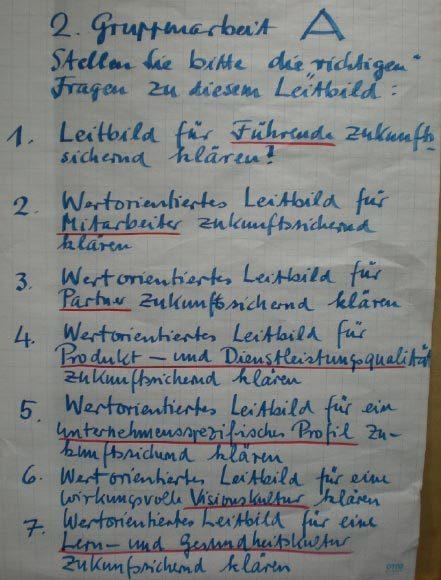 2. Gruppenarbeit A
Stellen Sie bitte die "richtigen"
Fragen zu diesem Leitbild:
1. Leitbild für Führende zukunfts-
sichernd klären!
2. Wertorientiertes Leitbild für
Mitarbeiter zukunftssichernd
klären
3. Wertorientiertes Leitbild für
Partner zukunftssichernd klären
4. Wertorientiertes Leitbild für
Produkt- und Dienstleistungsqualität
zukunftssichernd klären
5. Wertorientiertes Leitbild für ein
unternehmensspezifisches Profil zu-
kunftssichernd klären
6. Wertorientiertes Leitbild für eine
wirkungsvolle Visionskultur klären
7. Wertorientiertes Leitbild für eine
Lern- und Gesundheitskultur
zukunftssichernd klären